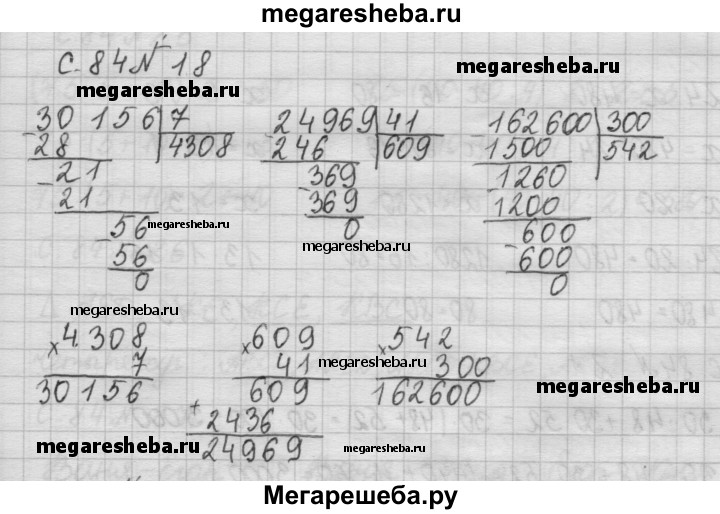 megaresheba.ru
с. 84 N 18
megaresheba.ru
megaresheba.ru
30 156 | 7
28 | 4308
- 21
21
- 56
56
0
megaresheba.ru
- 24969 | 41
246 | 609
- 369
369
0
megaresheba.ru
- 162600 | 300
1500 | 542
- 1260
1200
- 600
600
0
megaresheba.ru
megaresheba.ru
x 4308
7
30156
x 609
41
609
+ 2436
24969
x 542
300
162600
megaresheba.ru
megaresheba.ru
megaresheba.ru
megaresheba.ru
Мегарешеба.ру